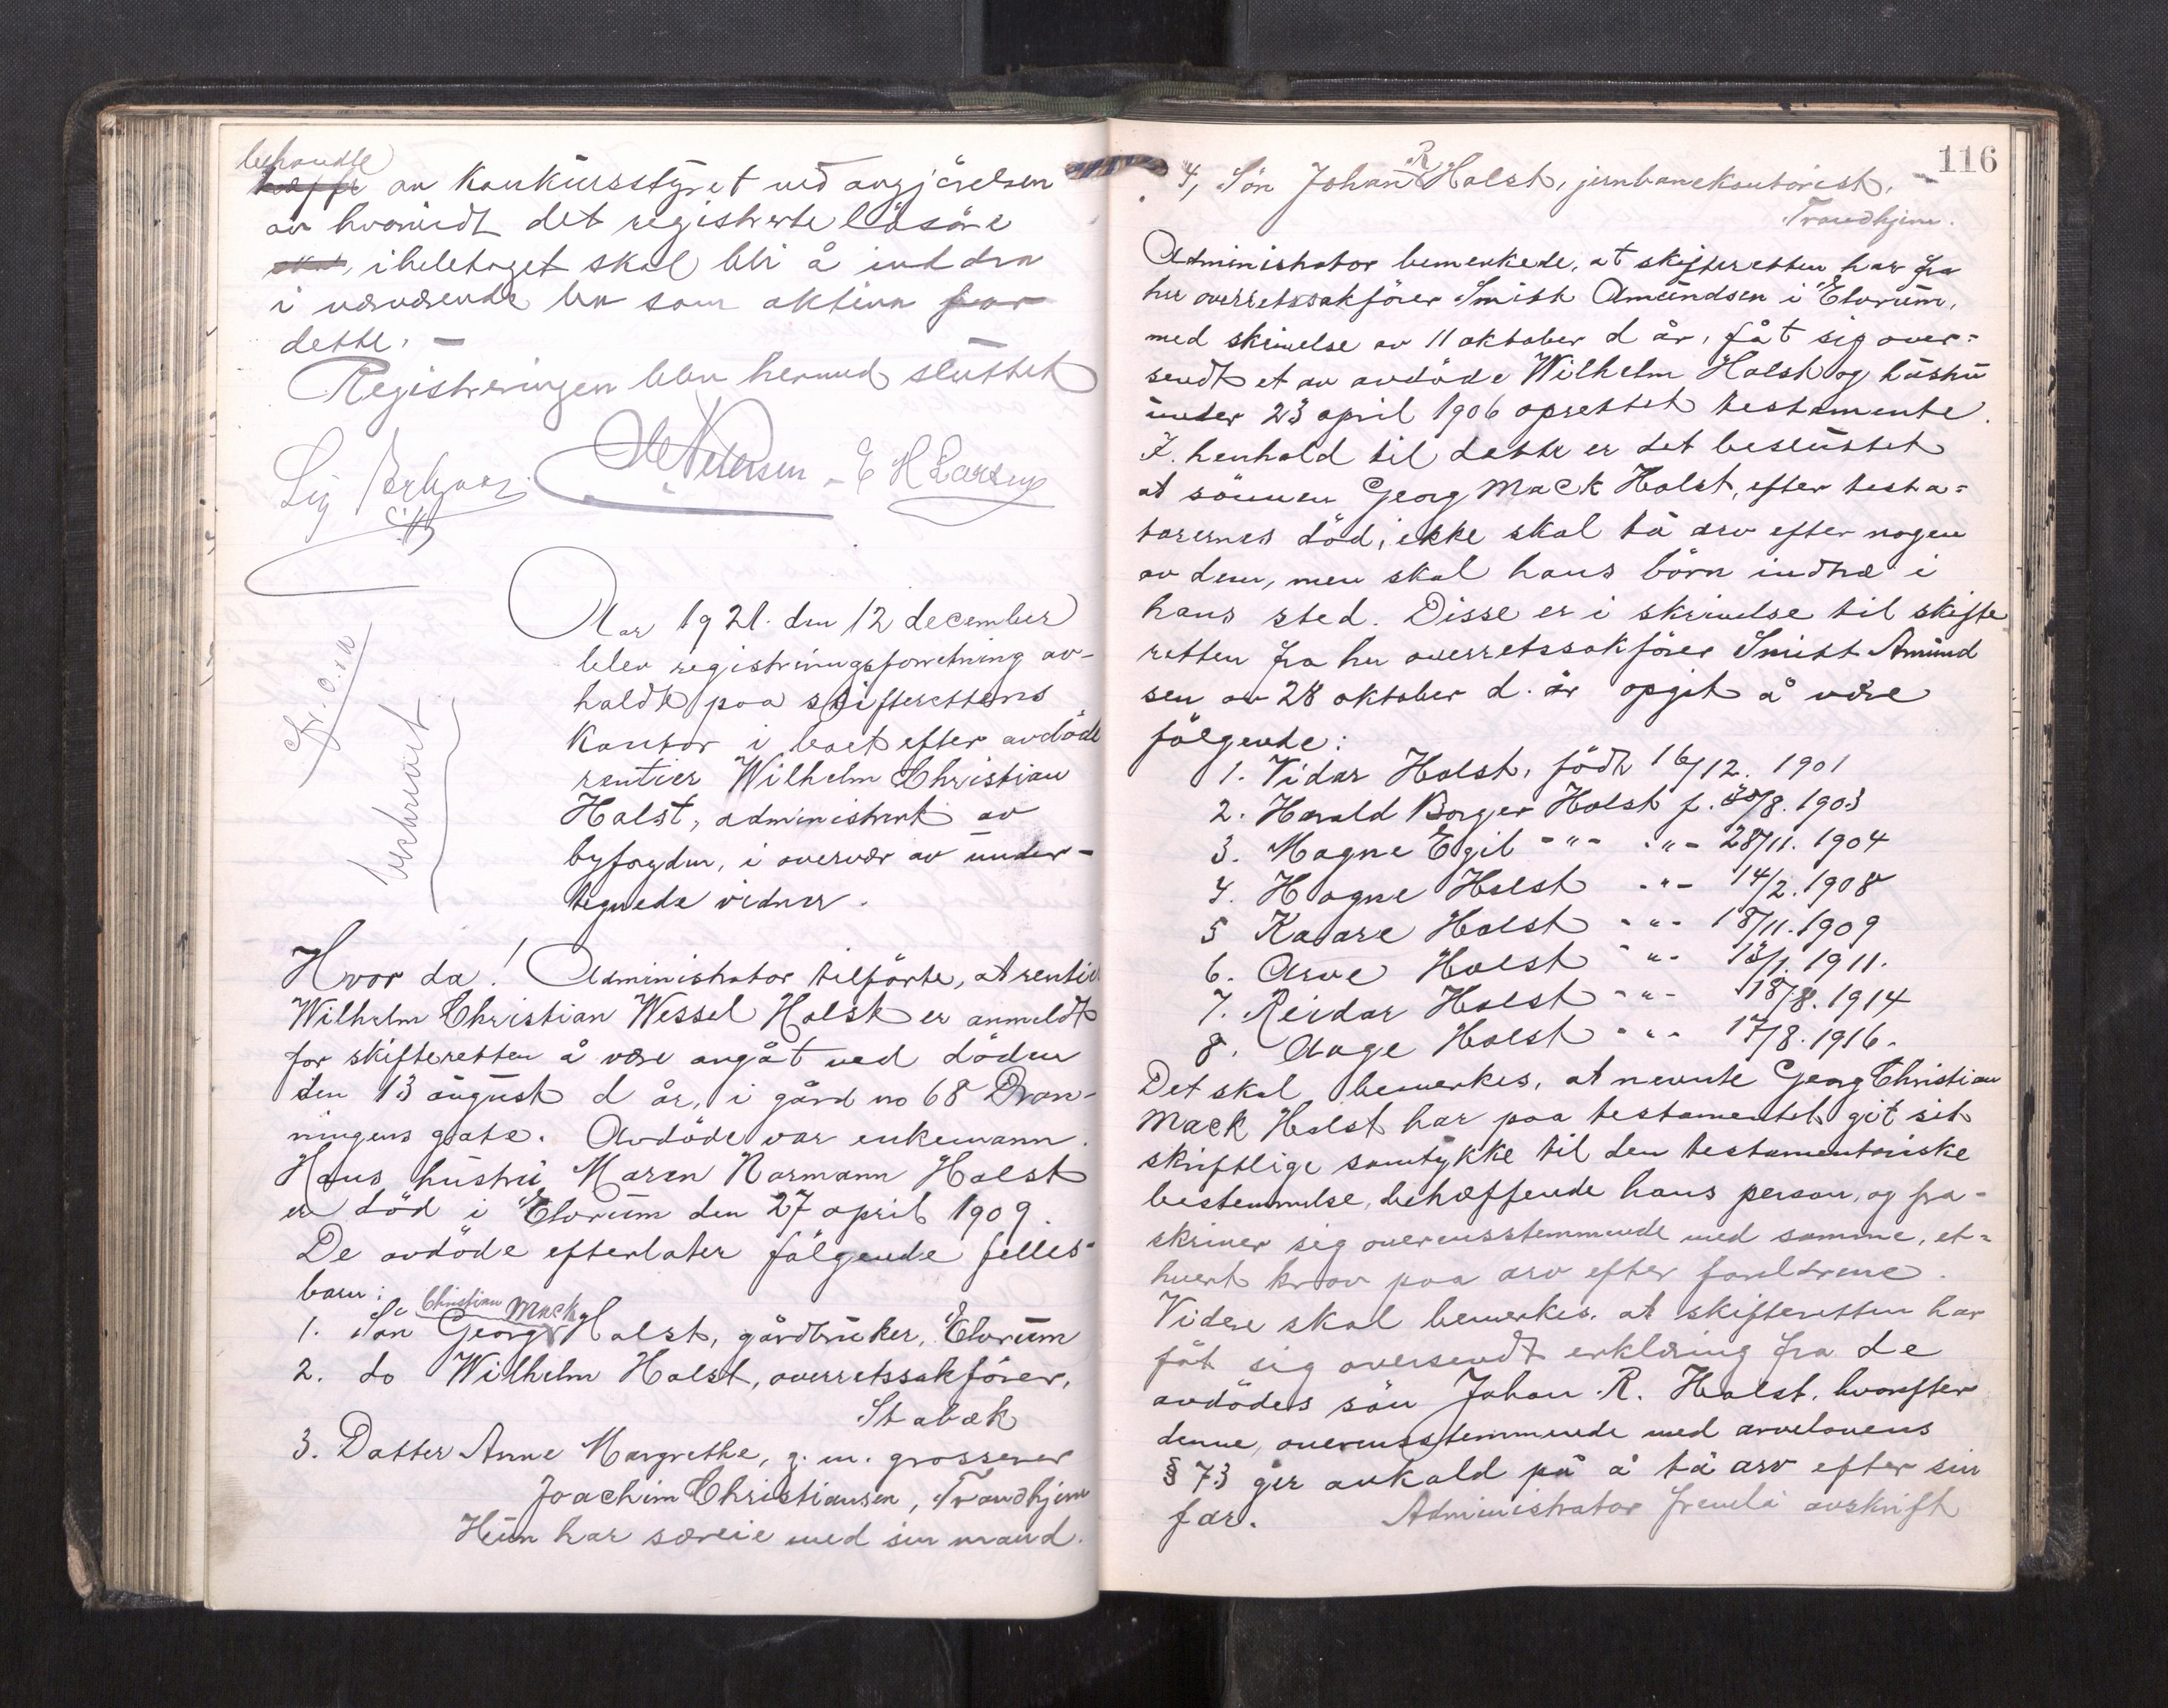 behandle
av konkursstyret ved avgjörelsen
av hvorvidt det registrerte lösöre
iheletaget skal bli å inddra
i nærværende bo som aktiva for
dette. —
Registreringen blev hermed sluttet
E H Larsen
Aar 1921. den 12 december
blev registreringsforretning av-
holdt paa skifterettens
kontor i boet efter avdöde
rentier Wilhelm Christian
Holst, administrert av
byfogden, i overvær av under-
tegnede vidner.
Hvor da! Administrator tilförte, at rentier
Wilhelm Christian Wessel Holst er anmeldt
for skifteretten å være avgåt ved döden
den 13 august d år, i gård no 68 Dron-
ningens gate. Avdöde var enkemann.
Hans hustru Maren Normann Holst
er död i Elverum den 27 april 1909.
De avdöde efterlater fölgende felles-
barn:
1. Sön Georg Christian Mack Holst, gårdbruker, Elverum
2. do Wilhelm Holst, overretssakförer,
Stabæk
3. Datter Anne Margrethe, g. m. grosserer
Joachim Christiansen, Trondhjem
Hun har særeie med sin mand.
116
4, Sön Johan R Holst, jernbanekontorist,
Trondhjem.
Administrator bemerkede, at skifteretten har fra
hr overretssakförer Smith Amundsen i Elverum,
med skrivelse av 11 oktober d år, fåt sig over-
sendt et av avdöde Wilhelm Holst og hustru
under 23 april 1906 oprettet testamente.
I henhold til dette er det besluttet
at sönnen Georg Mack Holst, efter testa-
torernes död, ikke skal ta arv efter nogen
av dem, men skal hans börn indtræ i
hans sted. Disse er i skrivelse til skifte
retten fra hr overretssakförer Smith Amund
sen av 28 oktober d. år opgit å være
fölgende:
1. Vidar Holst, född 16/12. 1901
2. Harald Borger Holst f. 30/8. 1903
3. Magne Egil -"- -"- 28/11. 1904
4. Hogne Holst -"- 14/2. 1908
5 Kaare Holst -"- 18/11. 1909
6. Arve Holst -"- 13/1. 1911.
7. Reidar Holst -"- 18/8. 1914
8. Aage Holst -"- 17/8. 1916.
Det skal bemerkes, at nevnte Georg Christian
Mack Holst har paa testamentet git sit
skriftlige samtykke til den testamentariske
bestemmelse, betræffende hans person, og fra-
skriver sig overensstemmende med samme, et-
hvert krav paa arv efter foreldrene.
Videre skal bemerkes, at skifteretten har
fåt sig oversendt erklæring fra de
avdödes sön Johan R. Holst, hvorefter
denne, overensstemmende med arvelovens
§ 73 gir avkald på å ta arv efter sin
far. Administrator fremla avskrift